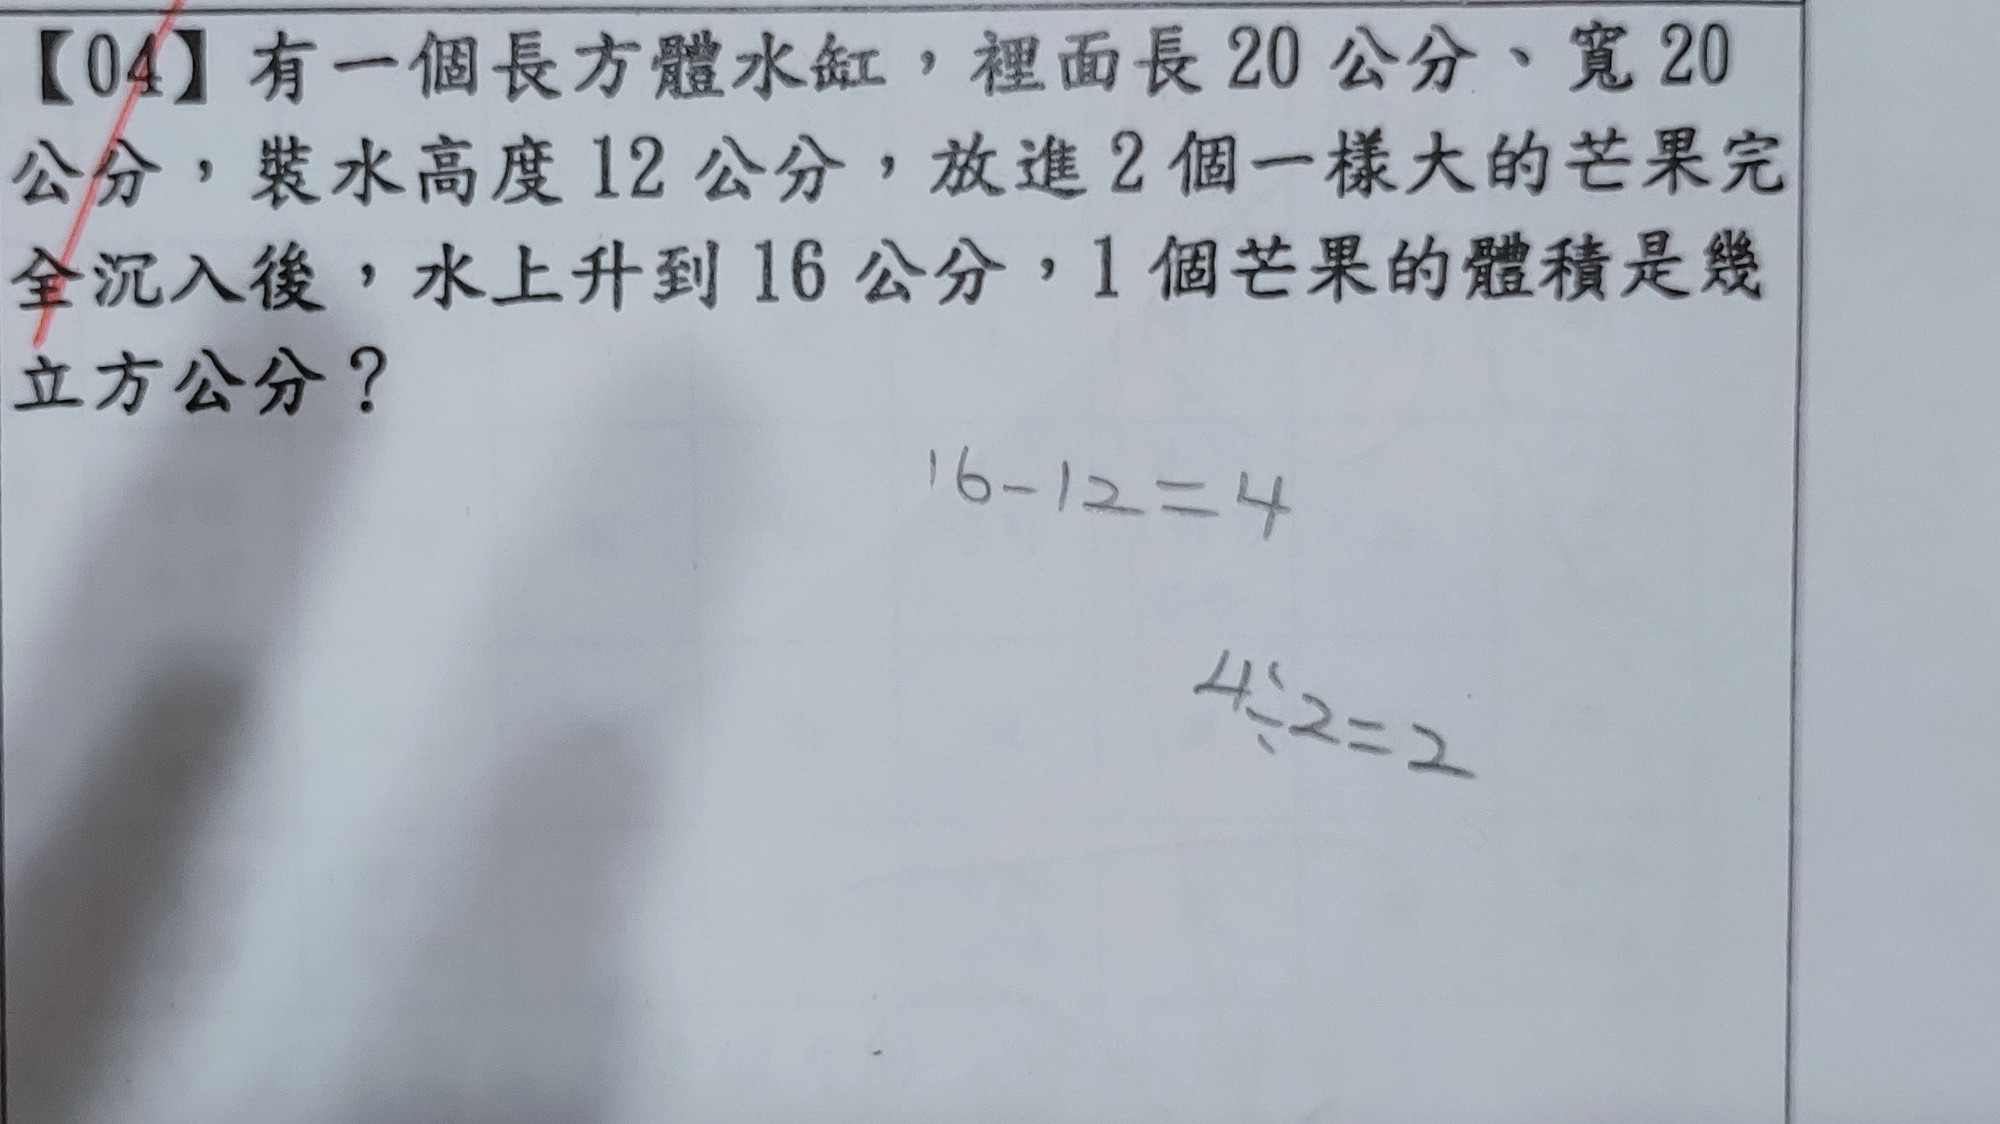 【04】有一個長方體水缸，裡面長20公分、寬20
公分，裝水高度12公分，放進2個一樣大的芒果完
全沉入後，水上升到16公分，1個芒果的體積是幾
立方公分？
16-12=4
4÷2=2